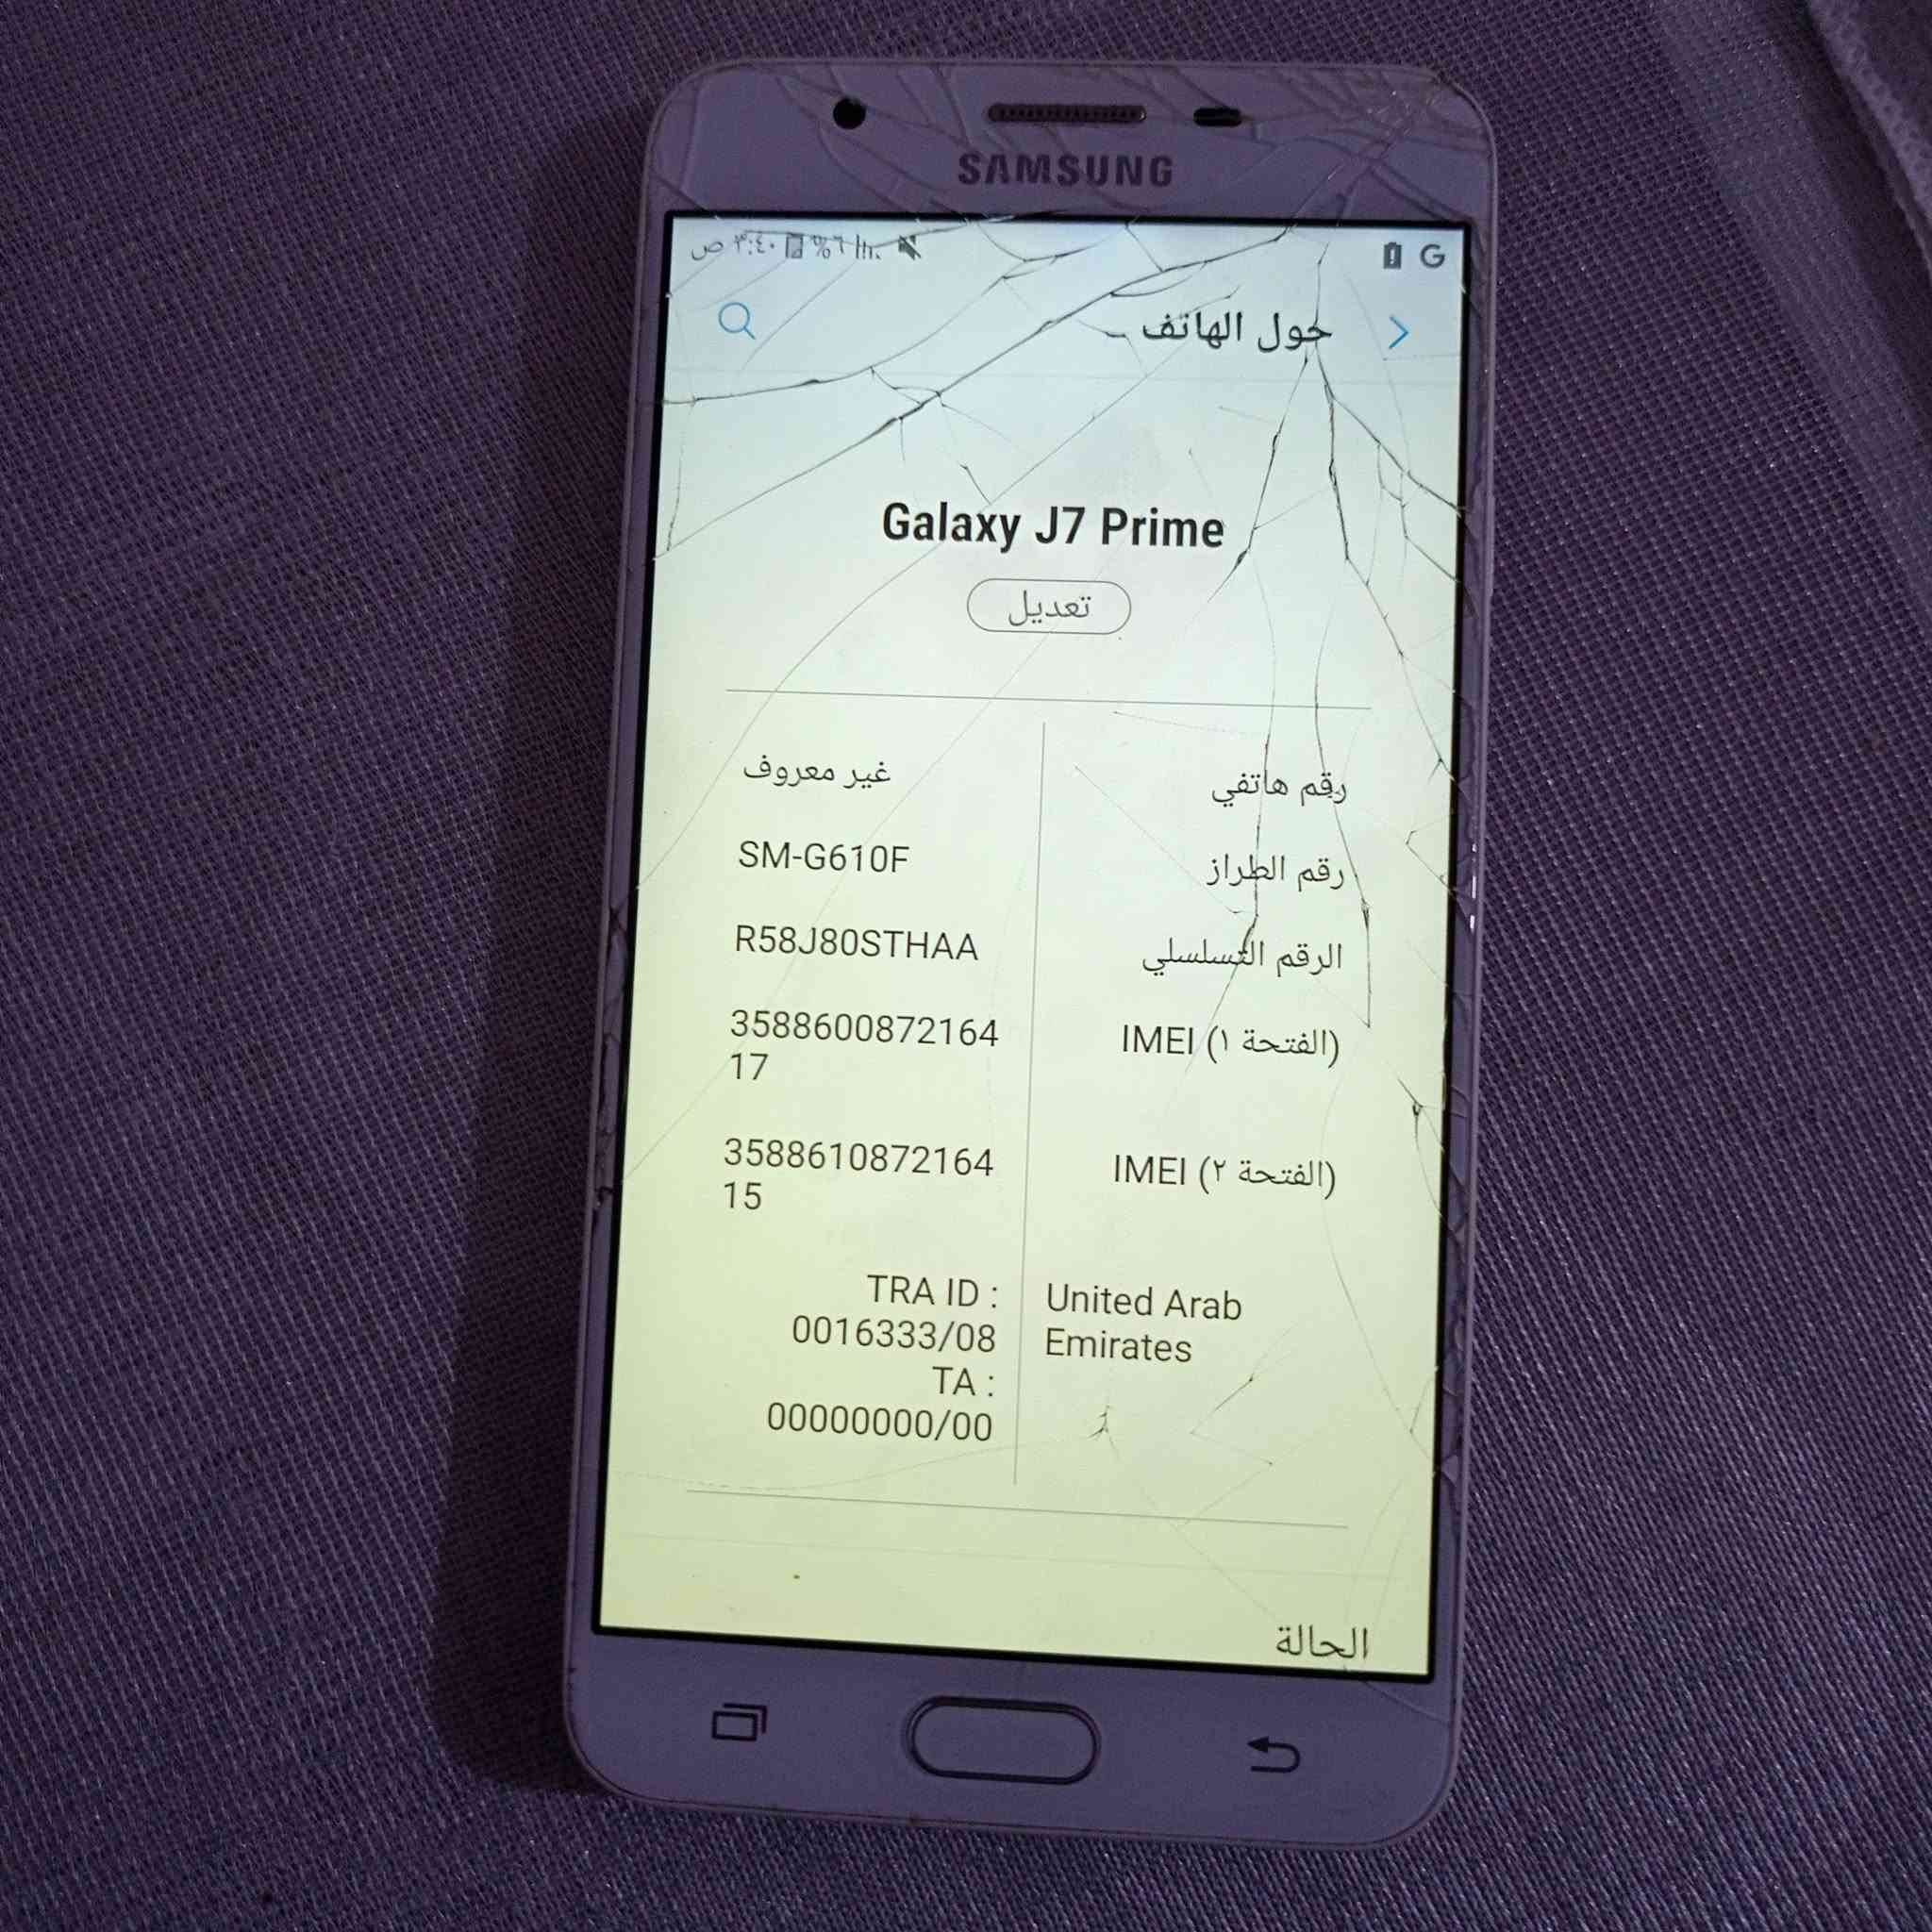 SAMSUNG
G ٪٦ ٣:٤٠ ص
حول الهاتف
Galaxy J7 Prime
تعديل
رقم هاتفي غير معروف
رقم الطراز SM-G610F
الرقم التسلسلي R58J80STHAA
IMEI (الفتحة ١) 3588600872164
17
IMEI (الفتحة ٢) 3588610872164
15
United Arab TRA ID :
Emirates 0016333/08
TA :
00000000/00
الحالة